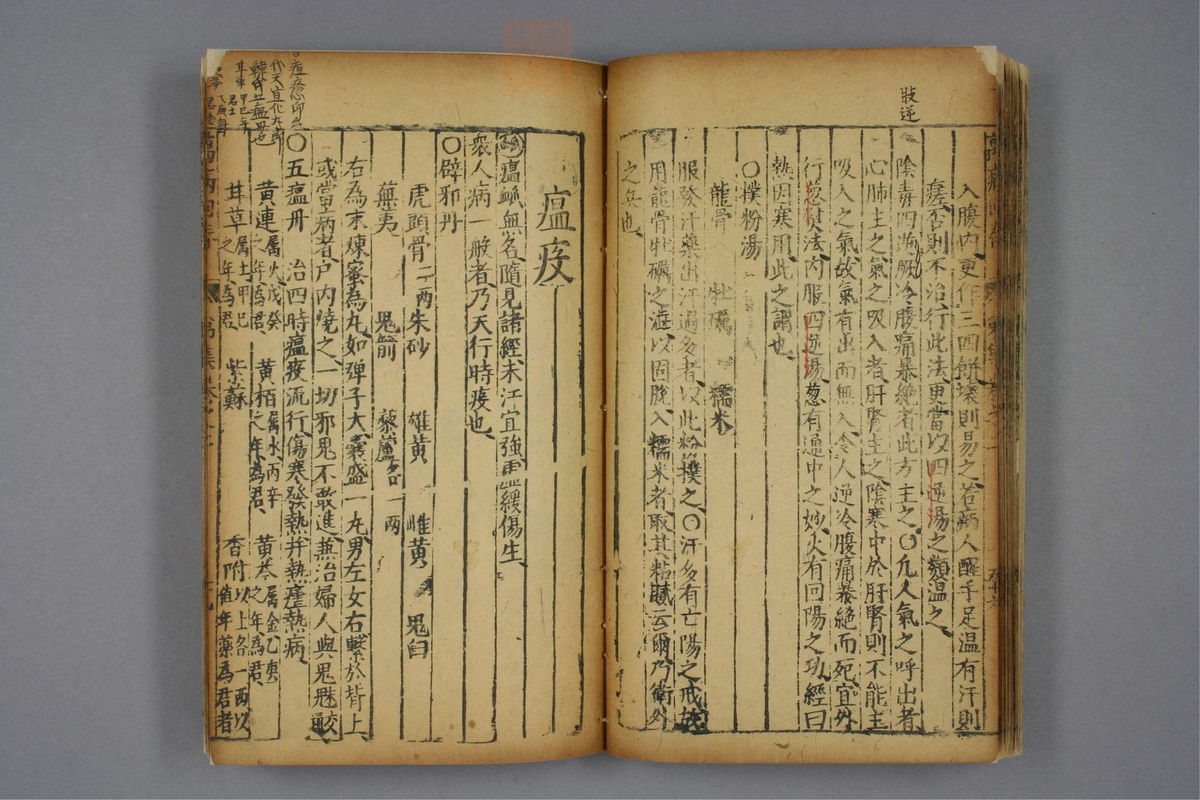 厥逆
入腹内更作三四餅壞則易之若病人醒手足温有汗則
瘥否則不治行此法更當以四逆湯之類温之
陰毒四肢厥冷腹痛暴絶者此方主之〇凡人氣之呼出者
心肺主之氣之吸入者肝腎主之陰寒中於肝腎則不能主
吸入之氣故氣有出而無入令人逆冷腹痛暴絶而死宜外
行葱熨法内服四逆湯葱有通中之妙火有回陽之功經曰
熱因寒用此之謂也
〇撲粉湯
龍骨 牡礪 糯米
服發汗藥出汗過多者以此粉撲之〇汗多有亡陽之戒故
用龍骨牡礪之澁以固脱入糯米者取其粘膩云爾乃衛外
之兵也
瘟疫
瘟無名隨見諸經未江宜強靈緩傷生
衆人病一般者乃天行時疫也
〇辟邪丹
虎頭骨二兩 朱砂 雄黄 雌黄 鬼臼
蕪荑 鬼箭 藜蘆各一兩
右為末煉蜜為丸如彈子大囊盛一丸男左女右繫於臂上
或當病者户内燒之一切邪鬼不敢進兼治婦人與鬼魅交
〇五瘟丹 治四時瘟疫流行傷寒發熱并熱瘧熱病
黄連屬火戊癸之年為君 黄栢屬水丙辛之年為君 黄芩屬金乙庚之年為君
甘草屬土甲巳之年為君 紫蘇 香附以上各一兩以值年藥為君者